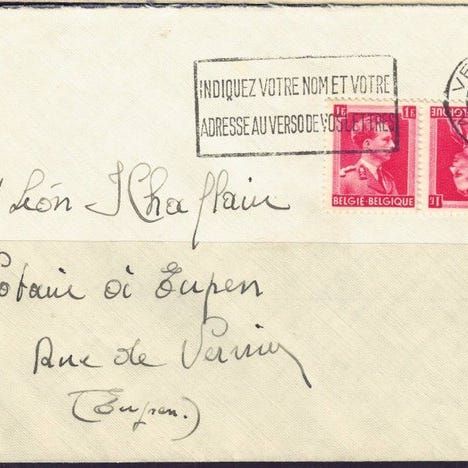 INDIQUEZ VOTRE NOM ET VOTRE
ADRESSE AU VERSO DE VOS LETTRES
VE
1F 1F
BELGIE-BELGIQUE
1F
BELGIE-BELGIQUE
Léon
à Eupen
Rue de
(Eupen.)